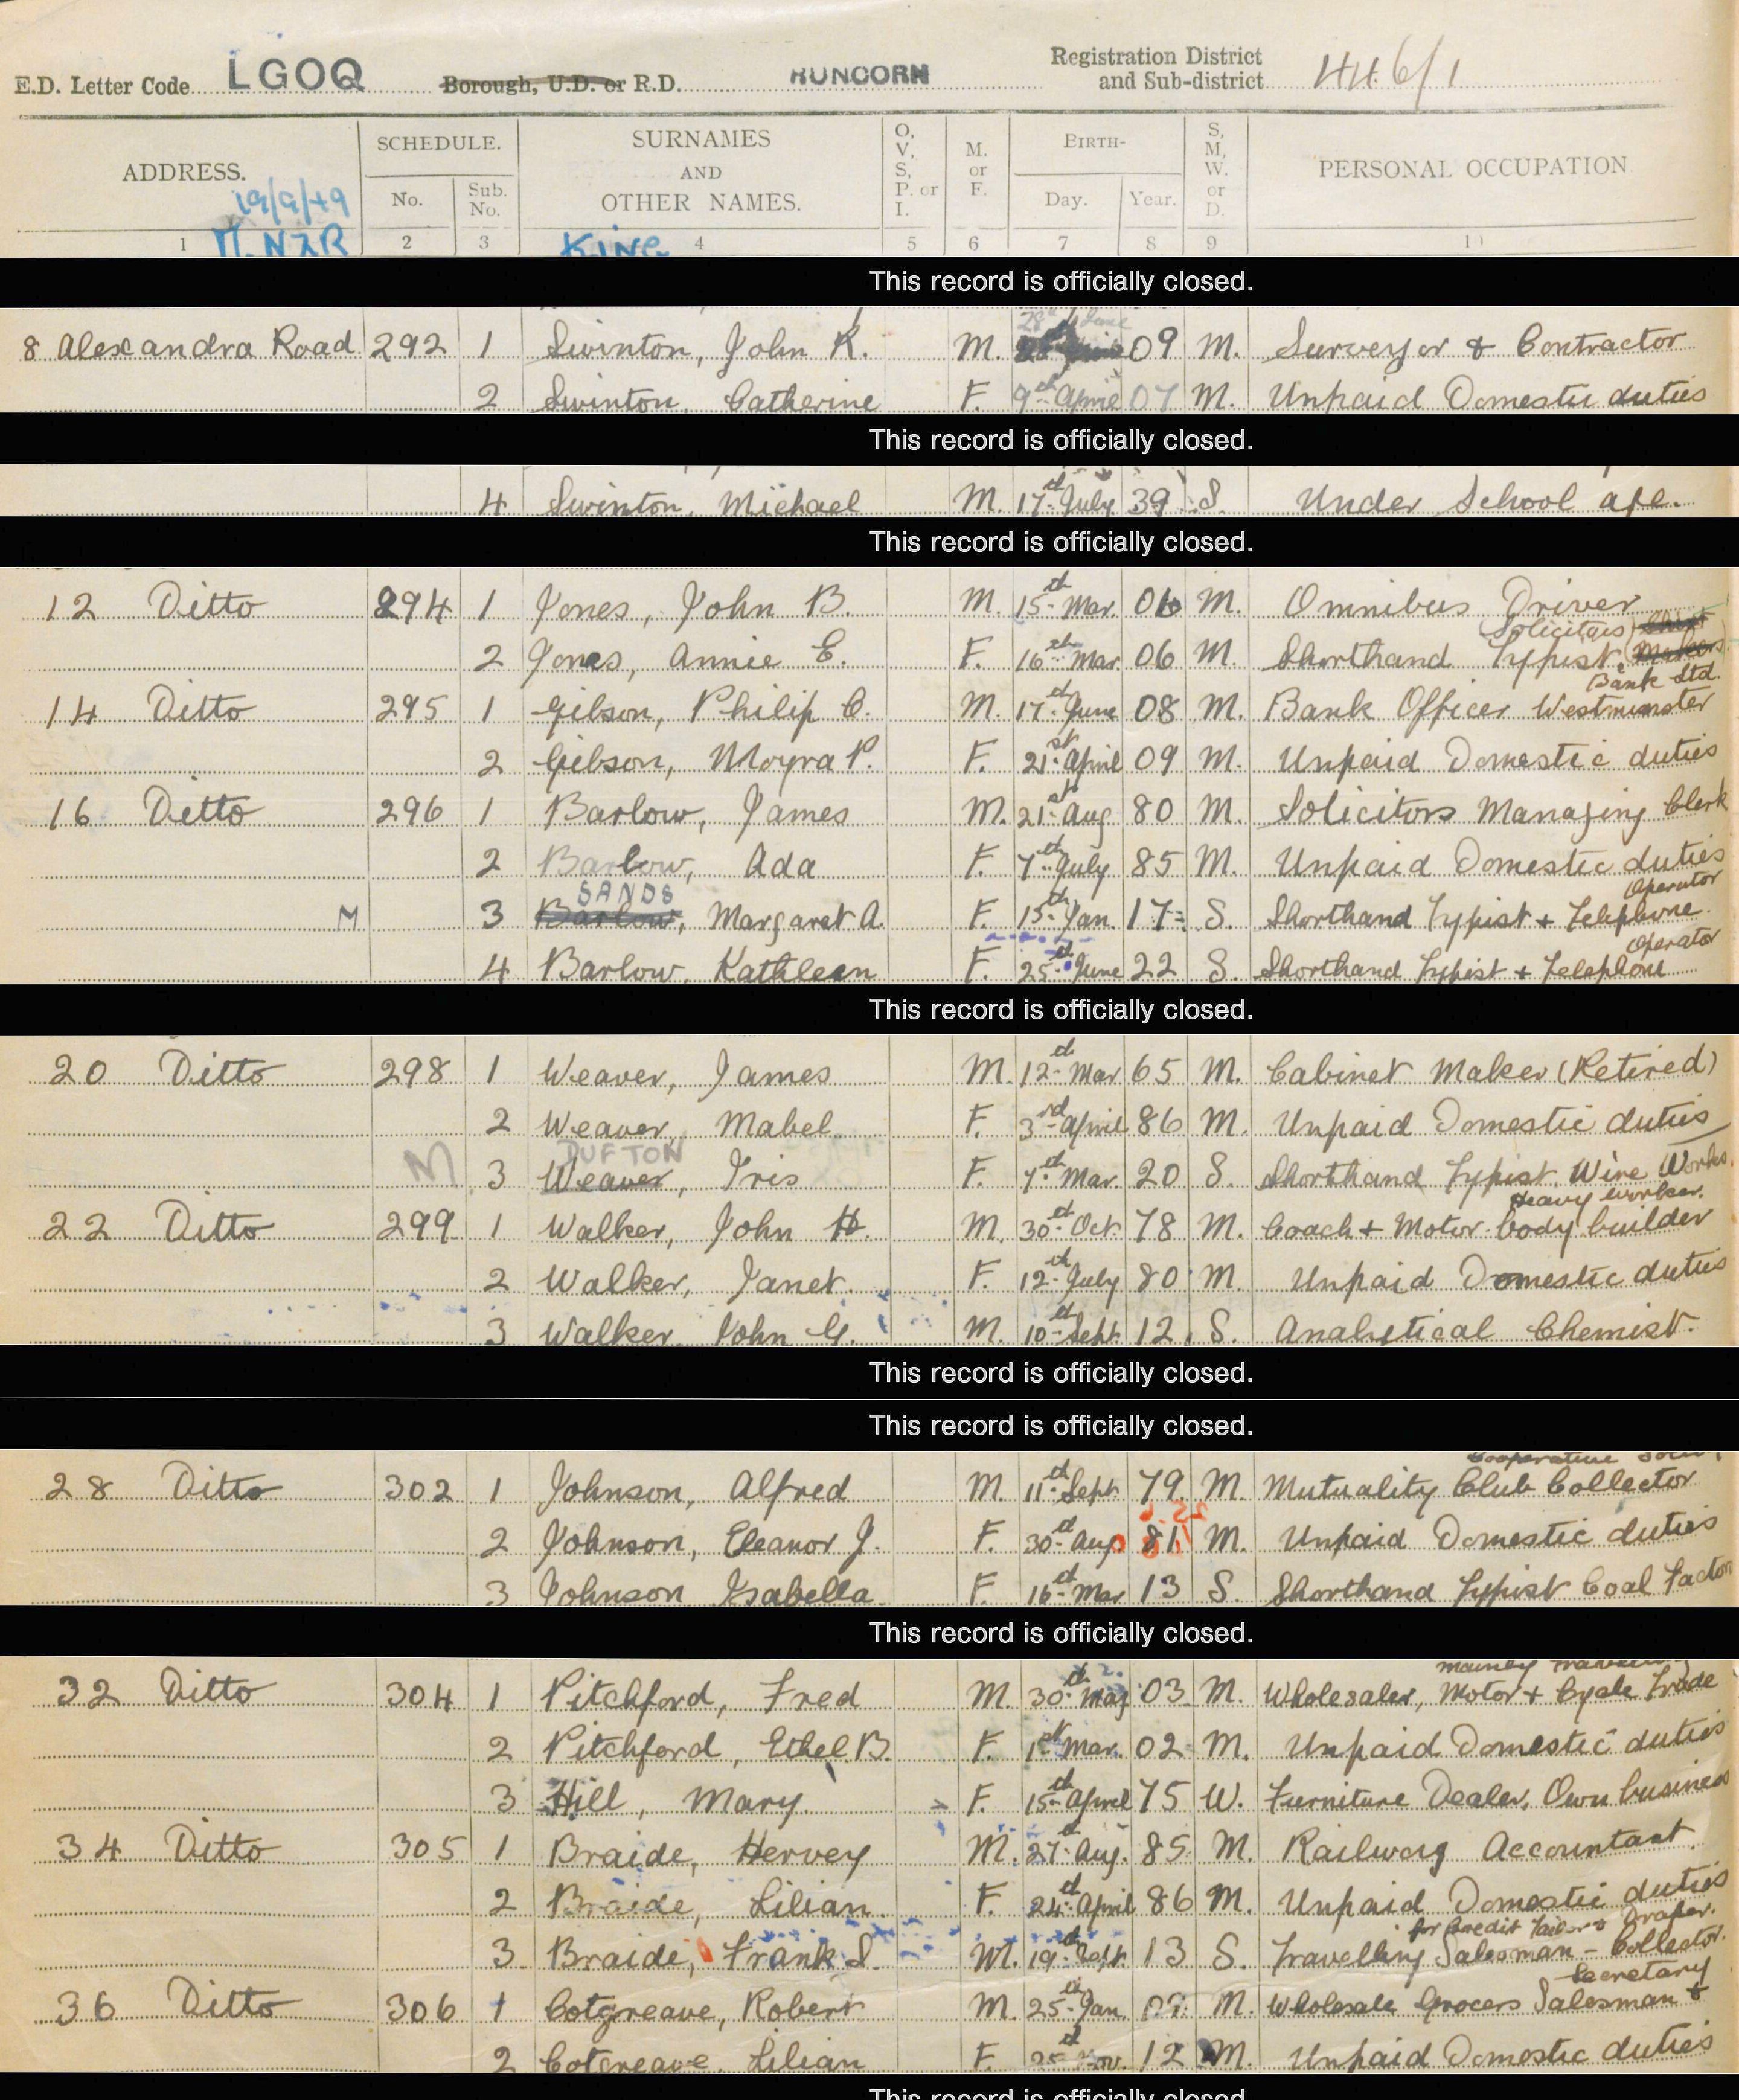 E.D. Letter Code LGOQ Borough, U.D. or R.D. RUNCORN Registration District and Sub-district 446/1
ADDRESS. SCHEDULE. No. Sub. No. SURNAMES AND OTHER NAMES. O, V, S, P. or I. M. or F. BIRTH- Day. Year. S, M, W. or D. PERSONAL OCCUPATION
19/9/49
1 2 3 4 5 6 7 8 9 10
This record is officially closed.
28th June
8 Alexandra Road 292 1 Swinton, John R. M. 09 M. Surveyor & Contractor
2 Swinton, Catherine F. 9th April 07 M. Unpaid Domestic duties
This record is officially closed.
4 Swinton, Michael M. 17th July 39 S. Under School age.
This record is officially closed.
12 Ditto 294 1 Jones, John B. M. 15th Mar. 06 M. Omnibus Driver
(Solicitors)
2 Jones, Annie E. F. 16th Mar 06 M. Shorthand Typist.
Bank Ltd.
14 Ditto 295 1 Gibson, Philip C. M. 17th June 08 M. Bank Officer Westminster
2 Gibson, Moyra P. F. 21st April 09 M. Unpaid Domestic duties
16 Ditto 296 1 Barlow, James M. 21st Aug 80 M. Solicitors Managing Clerk
2 Barlow, Ada F. 7th July 85 M. Unpaid Domestic duties
SANDS Operator
M 3 Barlow, Margaret A. F. 15th Jan. 17 S. Shorthand Typist + Telephone
Operator
4 Barlow, Kathleen F. 25th June 22 S. Shorthand Typist + Telephone
This record is officially closed.
20 Ditto 298 1 Weaver, James M. 12th Mar 65 M. Cabinet Maker (Retired)
2 Weaver, Mabel F. 3rd April 86 M. Unpaid Domestic duties
DUFTON
M 3 Weaver, Iris F. 7th Mar. 20 S. Shorthand Typist. Wire Works.
Heavy worker.
22 Ditto 299 1 Walker, John H. M. 30th Oct 78 M. Coach + Motor body builder
2 Walker, Janet. F. 12th July 80 M. Unpaid Domestic duties
3 Walker, John G. M. 10th Sept 12 S. Analytical Chemist.
This record is officially closed.
This record is officially closed.
Cooperative Society
28 Ditto 302 1 Johnson, Alfred M. 11th Sept 79 M. Mutuality Club Collector
2 Johnson, Eleanor J. F. 30th Aug 81 M. Unpaid Domestic duties
3 Johnson Isabella F. 16th Mar 13 S. Shorthand Typist Coal Factor
This record is officially closed.
mainly
32 Ditto 304 1 Pitchford, Fred M. 30th May 03 M. Wholesaler, Motor + Cycle Trade
2 Pitchford, Ethel B. F. 1st Mar. 02 M. Unpaid Domestic duties
3 Hill, Mary. F. 15th April 75 W. Furniture Dealer, Own business
34 Ditto 305 1 Braide, Hervey M. 27th Aug. 85 M. Railway Accountant.
2 Braide, Lilian. F. 24th April 86 M. Unpaid Domestic duties
for Credit Tailor & Draper.
3 Braide, Frank S. M. 19th Sept. 13 S. Travelling Salesman - Collector.
Secretary
36 Ditto 306 1 Cotgreave, Robert M. 25th Jan. 09 M. Wholesale Grocers Salesman &
2 Cotgreave, Lilian F. 25th Nov. 12 M. Unpaid Domestic duties
This record is officially closed.